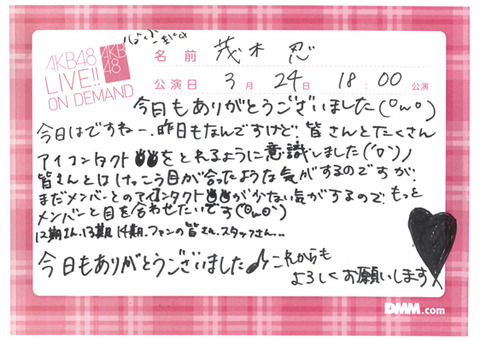 AKB48
LIVE!!
ON DEMAND
AKB
48
名前 茂木忍
公演日 3月24日 18:00公演
今日もありがとうございました(°ω°)
今日はですねー、昨日もなんですけど!皆さんとたくさん
アイコンタクトをとれるように意識しました('▽')ノ
皆さんとはけっこう目が合ったような気がするのですが、
まだメンバーとのアイコンタクトが少ない気がするので、もっと
メンバーと目を合わせたいです(°ω°)
12期さん、13期、14期、ファンの皆さん、スタッフさん…
今日もありがとうございました♪これからも
よろしくお願いします
DMM.com